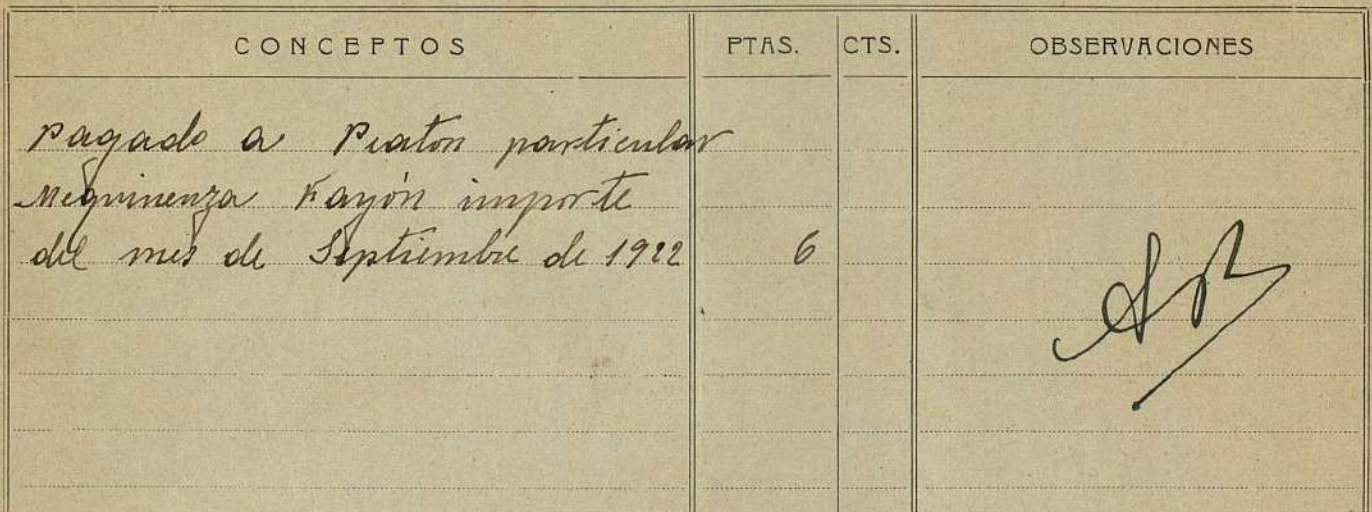 CONCEPTOS PTAS. CTS. OBSERVACIONES
Pagado a Peaton particular
Mequinenza Fayón importe
del mes de Septiembre de 1922 6